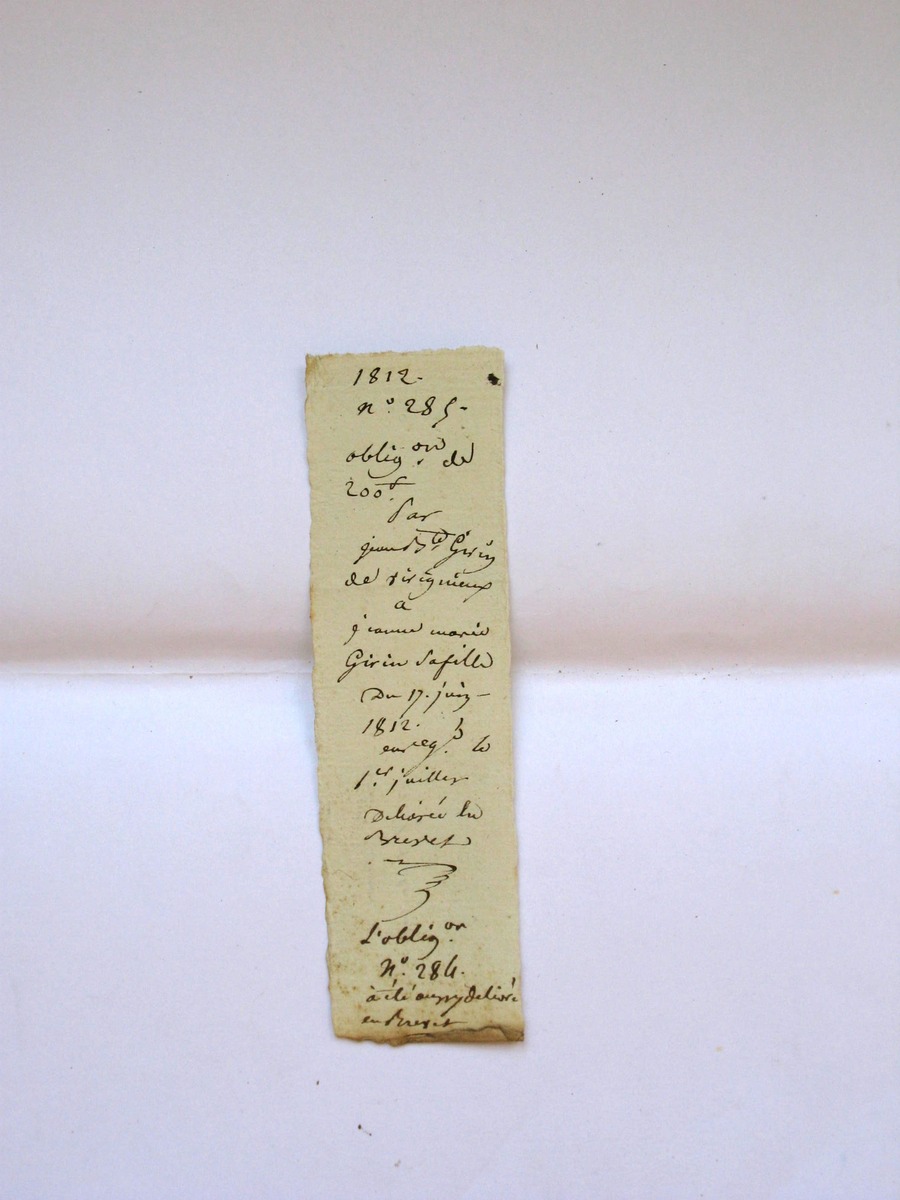 1812.
n.° 285.
oblig.on de
200 f
Par
jean B.te Girin
de risignieux
a
jeanne marie
Girin sa fille
Du 17. juin
1812.
enreg.é le
1.er juillet
Delivrée en
Brevet
L'oblig.on
N.° 284.
à été aussy delivrée
en Brevet